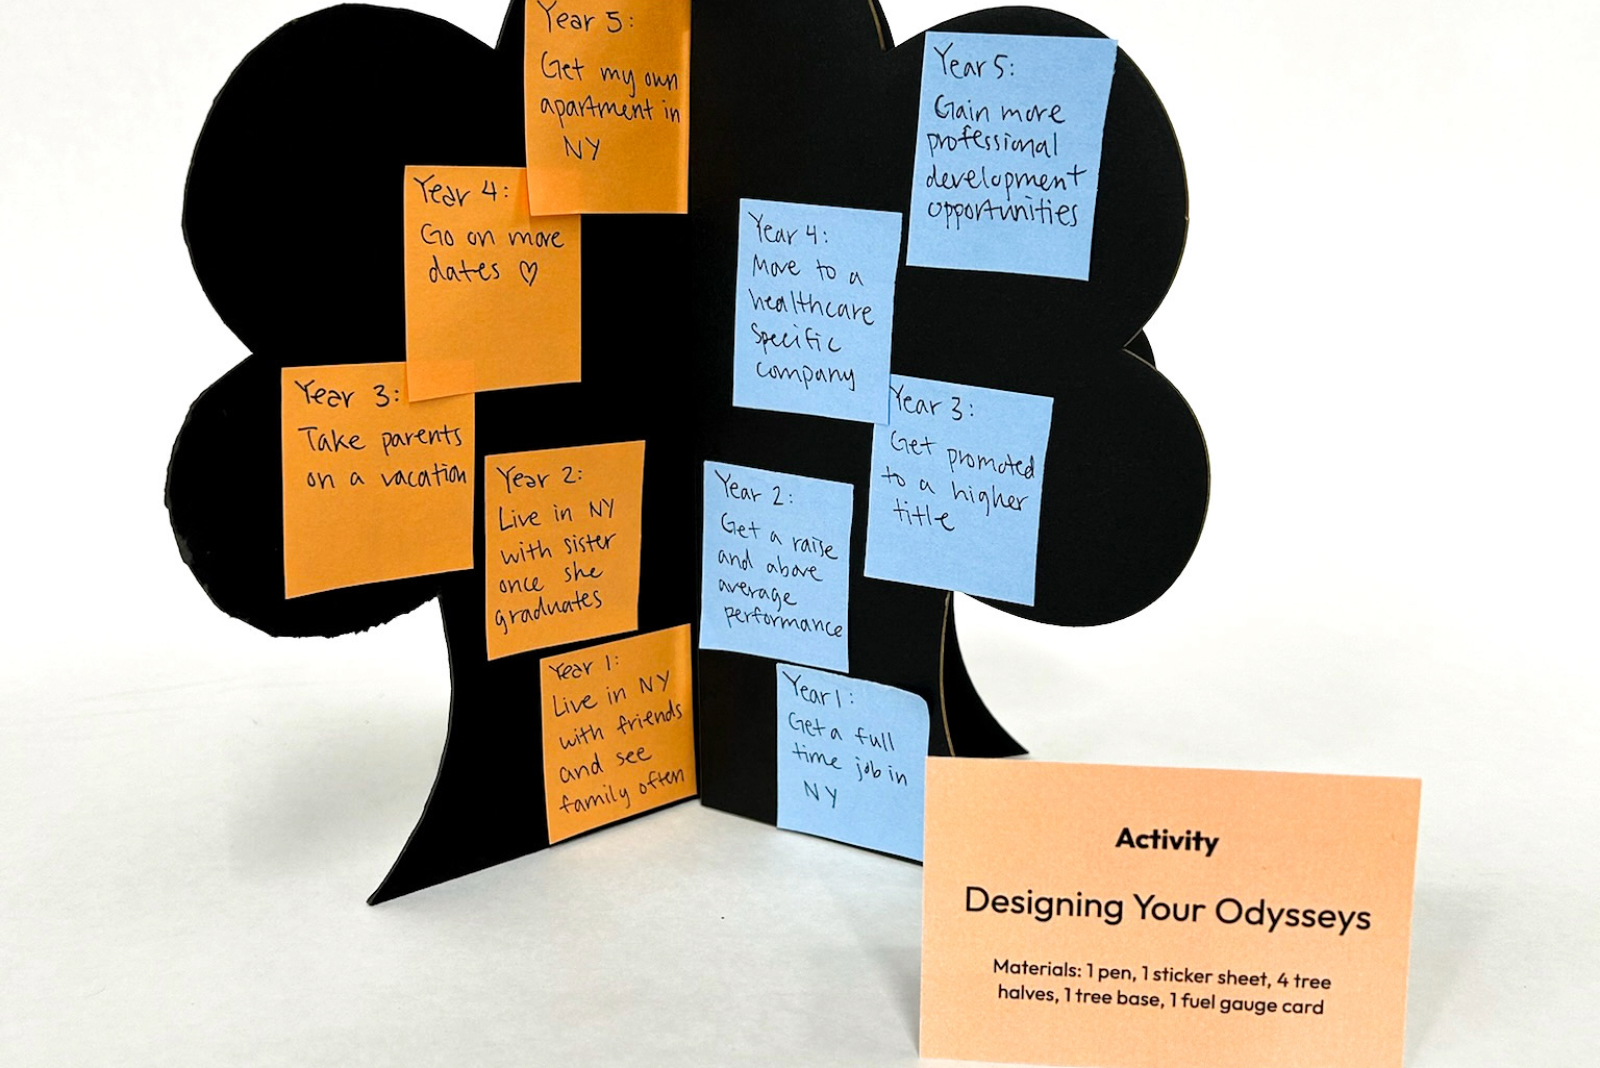 Year 5:
Get my own
apartment in
NY
Year 4:
Go on more
dates ♡
Year 3:
Take parents
on a vacation
Year 2:
Live in NY
with sister
once she
graduates
Year 1:
Live in NY
with friends
and see
family often
Year 5:
Gain more
professional
development
opportunities
Year 4:
Move to a
healthcare
specific
company
Year 3:
Get promoted
to a higher
title
Year 2:
Get a raise
and above
average
performance
Year 1:
Get a full
time job in
NY
Activity
Designing Your Odysseys
Materials: 1 pen, 1 sticker sheet, 4 tree
halves, 1 tree base, 1 fuel gauge card